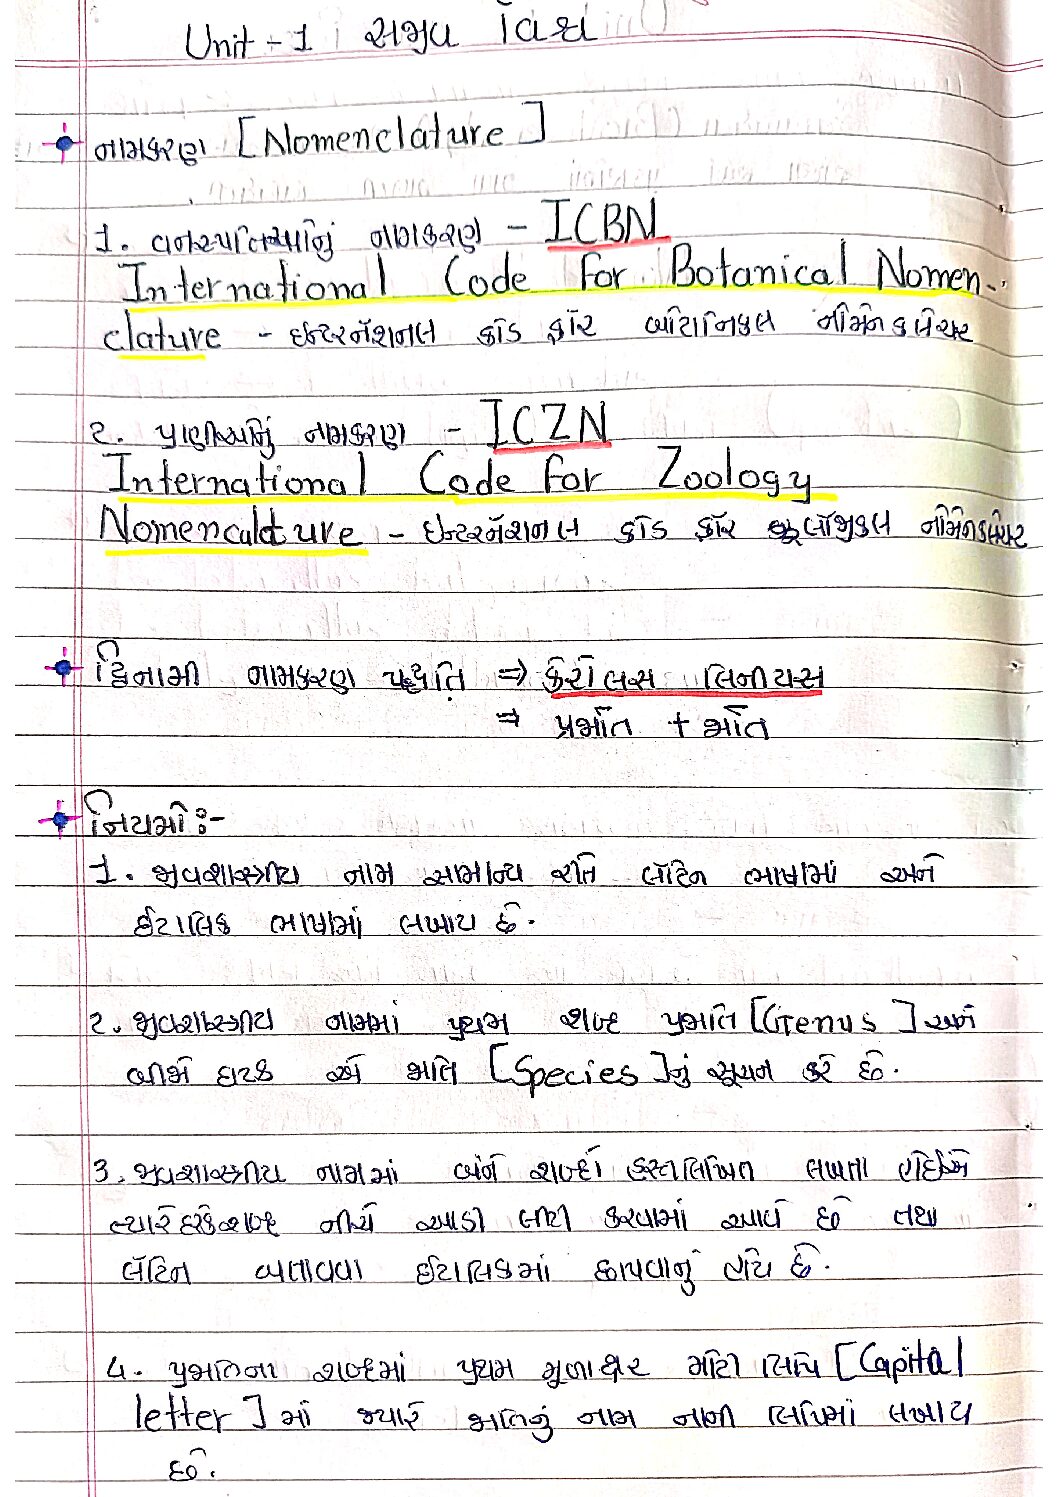 Unit - 1 સજીવ વિશ્વ
નામકરણ [Nomenclature]
1. વનસ્પતિઓનું નામકરણ - ICBN
International Code For Botanical Nomen-
clature - ઇન્ટરનૅશનલ કૉડ ફૉર બોટાનિકલ નોમેનક્લેચર
૨. પ્રાણીઓનું નામકરણ - ICZN
International Code for Zoology
Nomenculature - ઇન્ટરનૅશનલ કૉડ ફૉર ઝૂલૉજીકલ નોમેનક્લેચર
દ્વિનામી નામકરણ પદ્ધતિ ⇒ કેરોલસ લિનીયસ
⇒ પ્રજાતિ + જાતિ
નિયમો :-
1. જીવશાસ્ત્રીય નામ સામાન્ય રીતે લૅટિન ભાષામાં અને
ઈટાલિક ભાષામાં લખાય છે.
૨. જીવશાસ્ત્રીય નામમાં પ્રથમ શબ્દ પ્રજાતિ [Genus] અને
બીજો ઘટક એ જાતિ [Species]નું સૂચન કરે છે.
3. જીવશાસ્ત્રીય નામમાં બંને શબ્દો હસ્તલિખિત લખતા હોઈએ
ત્યારે દરેક શબ્દ નીચે આડી લીટી કરવામાં આવે છે તથા
લૅટિન બતાવવા ઈટાલિકમાં છાપવાનું હોય છે.
૪. પ્રજાતિના શબ્દમાં પ્રથમ મૂળાક્ષર મોટી લિપિ [Capital
letter]માં જ્યારે જાતિનું નામ નાની લિપિમાં લખાય
છે.